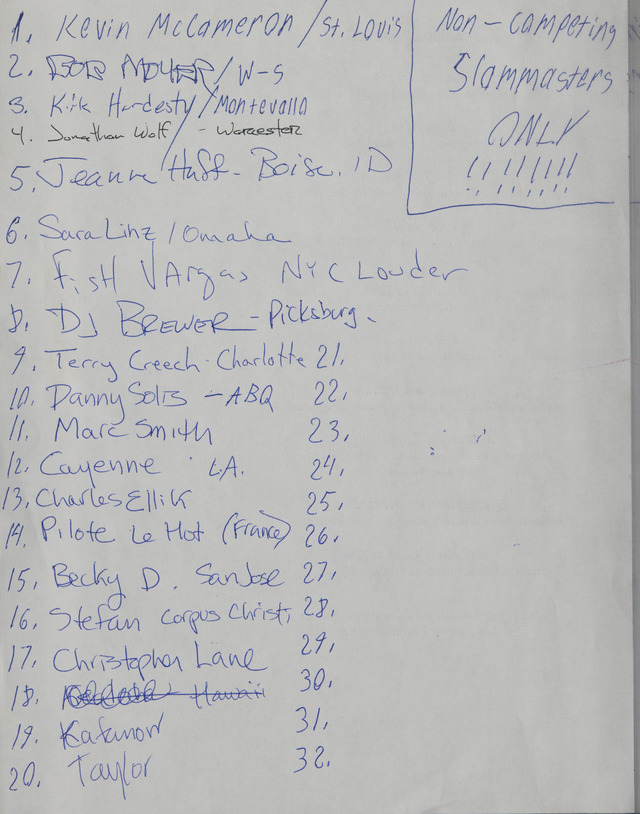 1. Kevin McCameron / St. Louis
2. BOB MOYER / W-S
3. Kirk Hardesty / Montevalla
4. Jonathan Wolf - Worcester
5. Jeanne Huff - Boise, ID
Non-Competing
Slammasters
ONLY
!!!!!!!!
6. Sara Linz / Omaha
7. Fish Vargas NYC Louder
8. DJ BREWER - Picksburg.
9. Terry Creech - Charlotte 21.
10. Danny Solis - ABQ 22.
11. Marc Smith 23.
12. Cayenne L.A. 24.
13. Charles Ellik 25.
14. Pilote Le Hot (France) 26.
15. Becky D. San Jose 27.
16. Stefan Corpus Christi 28.
17. Christopher Lane 29.
18. Hawaii 30.
19. 31.
20. Taylor 32.